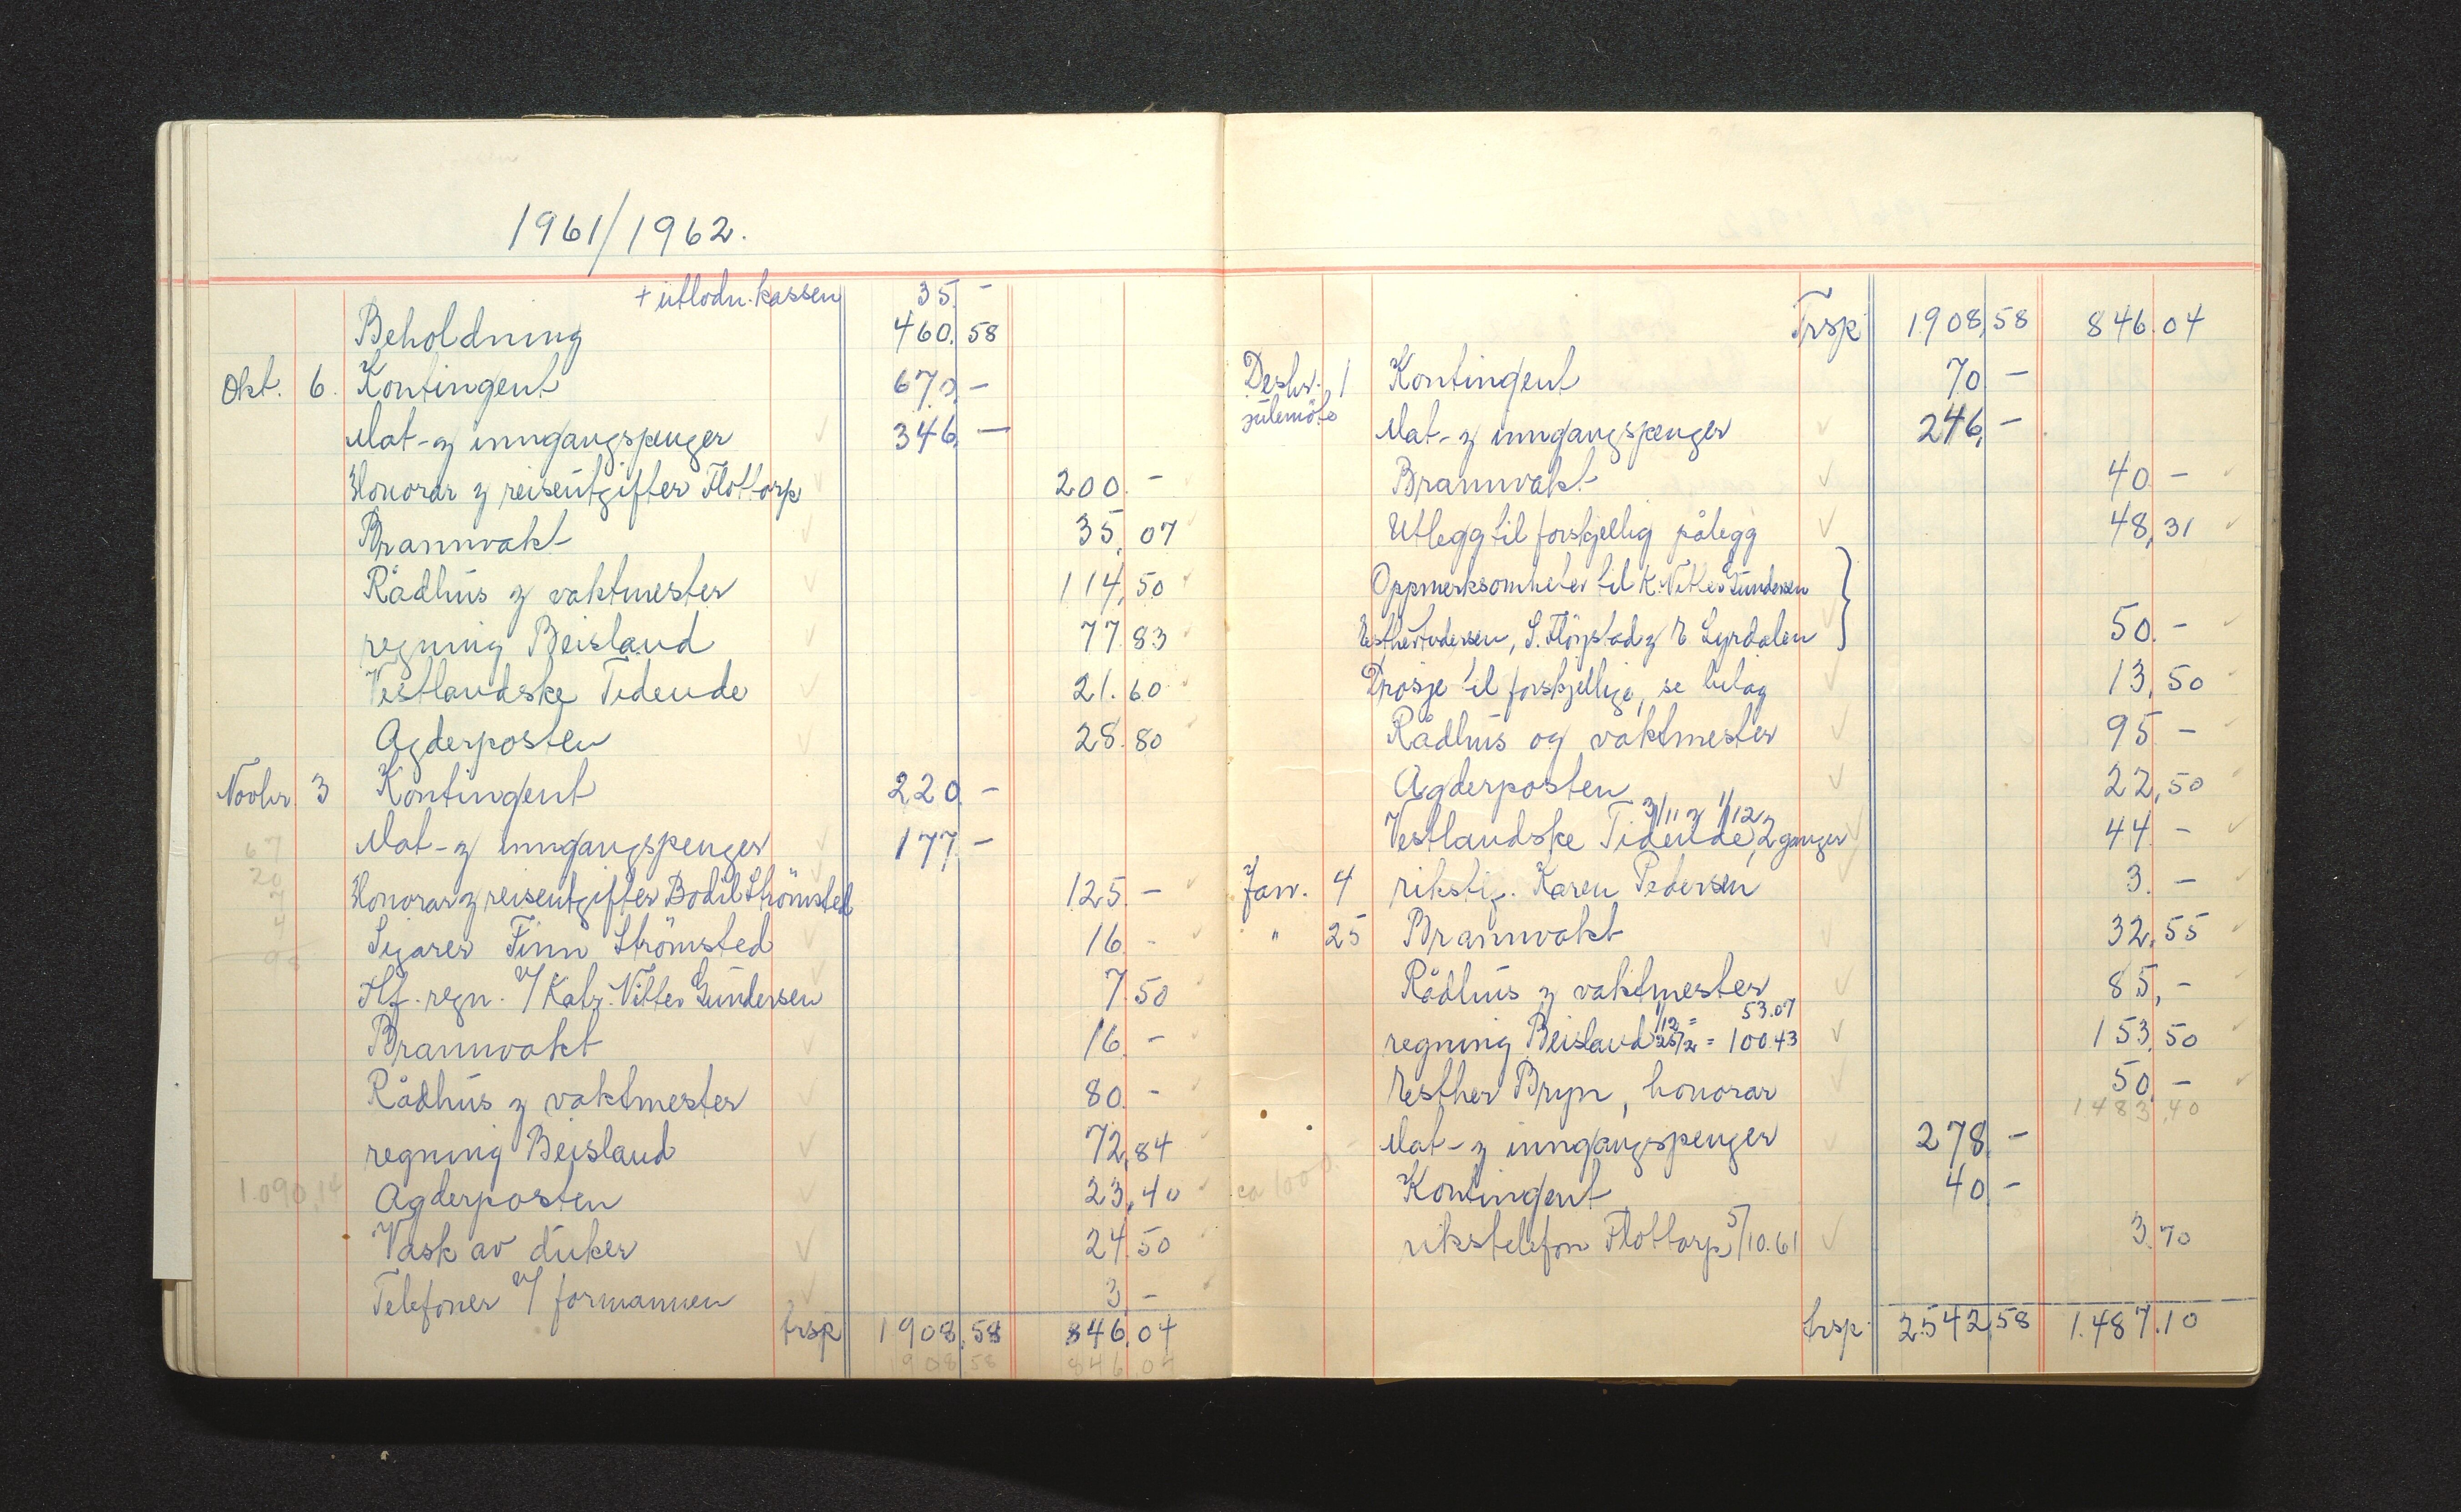 1961/1962.
+ utlodn.kassen 35.-
Beholdning 460.58
Okt. 6. Kontingent 670.-
Mat- og inngangspenger 346.-
Honorar og reiseutgifter Flottorp 200.-
Brannvakt 35,07
Rådhus og vaktmester 114,50
regning Beisland 77.83
Vestlandske Tidende 21.60
Agderposten 28.80
Novbr. 3 Kontingent 220.-
Mat- og inngangspenger 177.-
Honorar og reiseutgifter Bodil Strömsted 125.-
Sigarer Finn Strömsted 16.-
Tlf. regn. v/ Kabr. Vitter Gundersen 7.50
Brannvakt 16.-
Rådhus og vaktmester 80.-
regning Beisland 72,84
1.090,14 Agderposten 23,40
Vask av duker 24.50
Telefoner v/ formannen 3.-
trsp 1908.58 846.04
1908 58 846.04
Trsp 1908,58 846.04
Desbr. 1 Kontingent 70 -
julemöte Mat- og inngangspenger 246,-
Brannvakt 40 -
Utlegg til forskjellig pålegg 48,31
Oppmerksomheter til K. Vitter Gundersen
Esther Andersen, S. Flöystad og E Lyrdalen 50.-
Drosje til forskjellige, se bilag 13,50
Rådhus og vaktmester 95 -
Agderposten 22,50
3/11 og 1/12
Vestlandske Tidende, 2 ganger 44 -
Jan. 4 rikstlf. Karen Pedersen 3.-
" 25 Brannvakt 32,55
Rådhus og vaktmester 85,-
1/12 = 53.07
regning Beisland = 100.43 153.50
Esther Bryn, honorar 50.-
1.483,40
Mat- og inngangspenger 278.-
ca 1000 Kontingent 40.-
rikstelefon Flottorp 5/10.61 3.70
trsp. 2.542,58 1.487.10